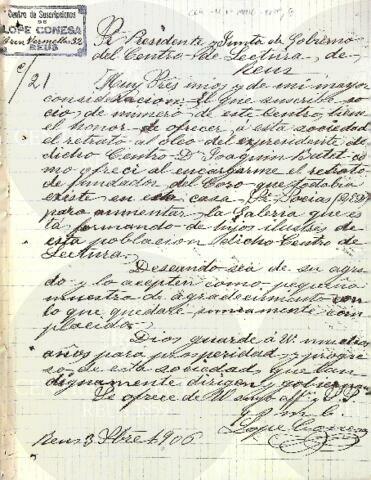 Centro de Suscripciones
DE
LOPE CONESA
REUS
Sr Presidente y Junta de Gobierno
del Centro de Lectura de
Reus
Muy Sres mios y de mi mayor
consideracion: El que suscribe so
cio de número de este Centro, tiene
el honor de ofrecer á esta sociedad
el retrato al óleo del expresidente de
dicho Centro D. Joaquin co
mo ofreci al encargarme el retrato
de fundador del Coro que todabia
existe en esta casa Sr
para aumentar la Galeria que es
ta formando de hijos ilustres de
esta poblacion dicho Centro de
Lectura.
Deseando sea de su agra
do y lo acepten como pequeña
muestra de agradecimiento con
lo que quedaré sumamente com
placido.
Dios guarde á V. muchos
años para prosperidad y progre
so de esta sociedad que tan
dignamente dirigen y gobiernan
Se ofrece de
Lope Conesa
Reus 3 1906